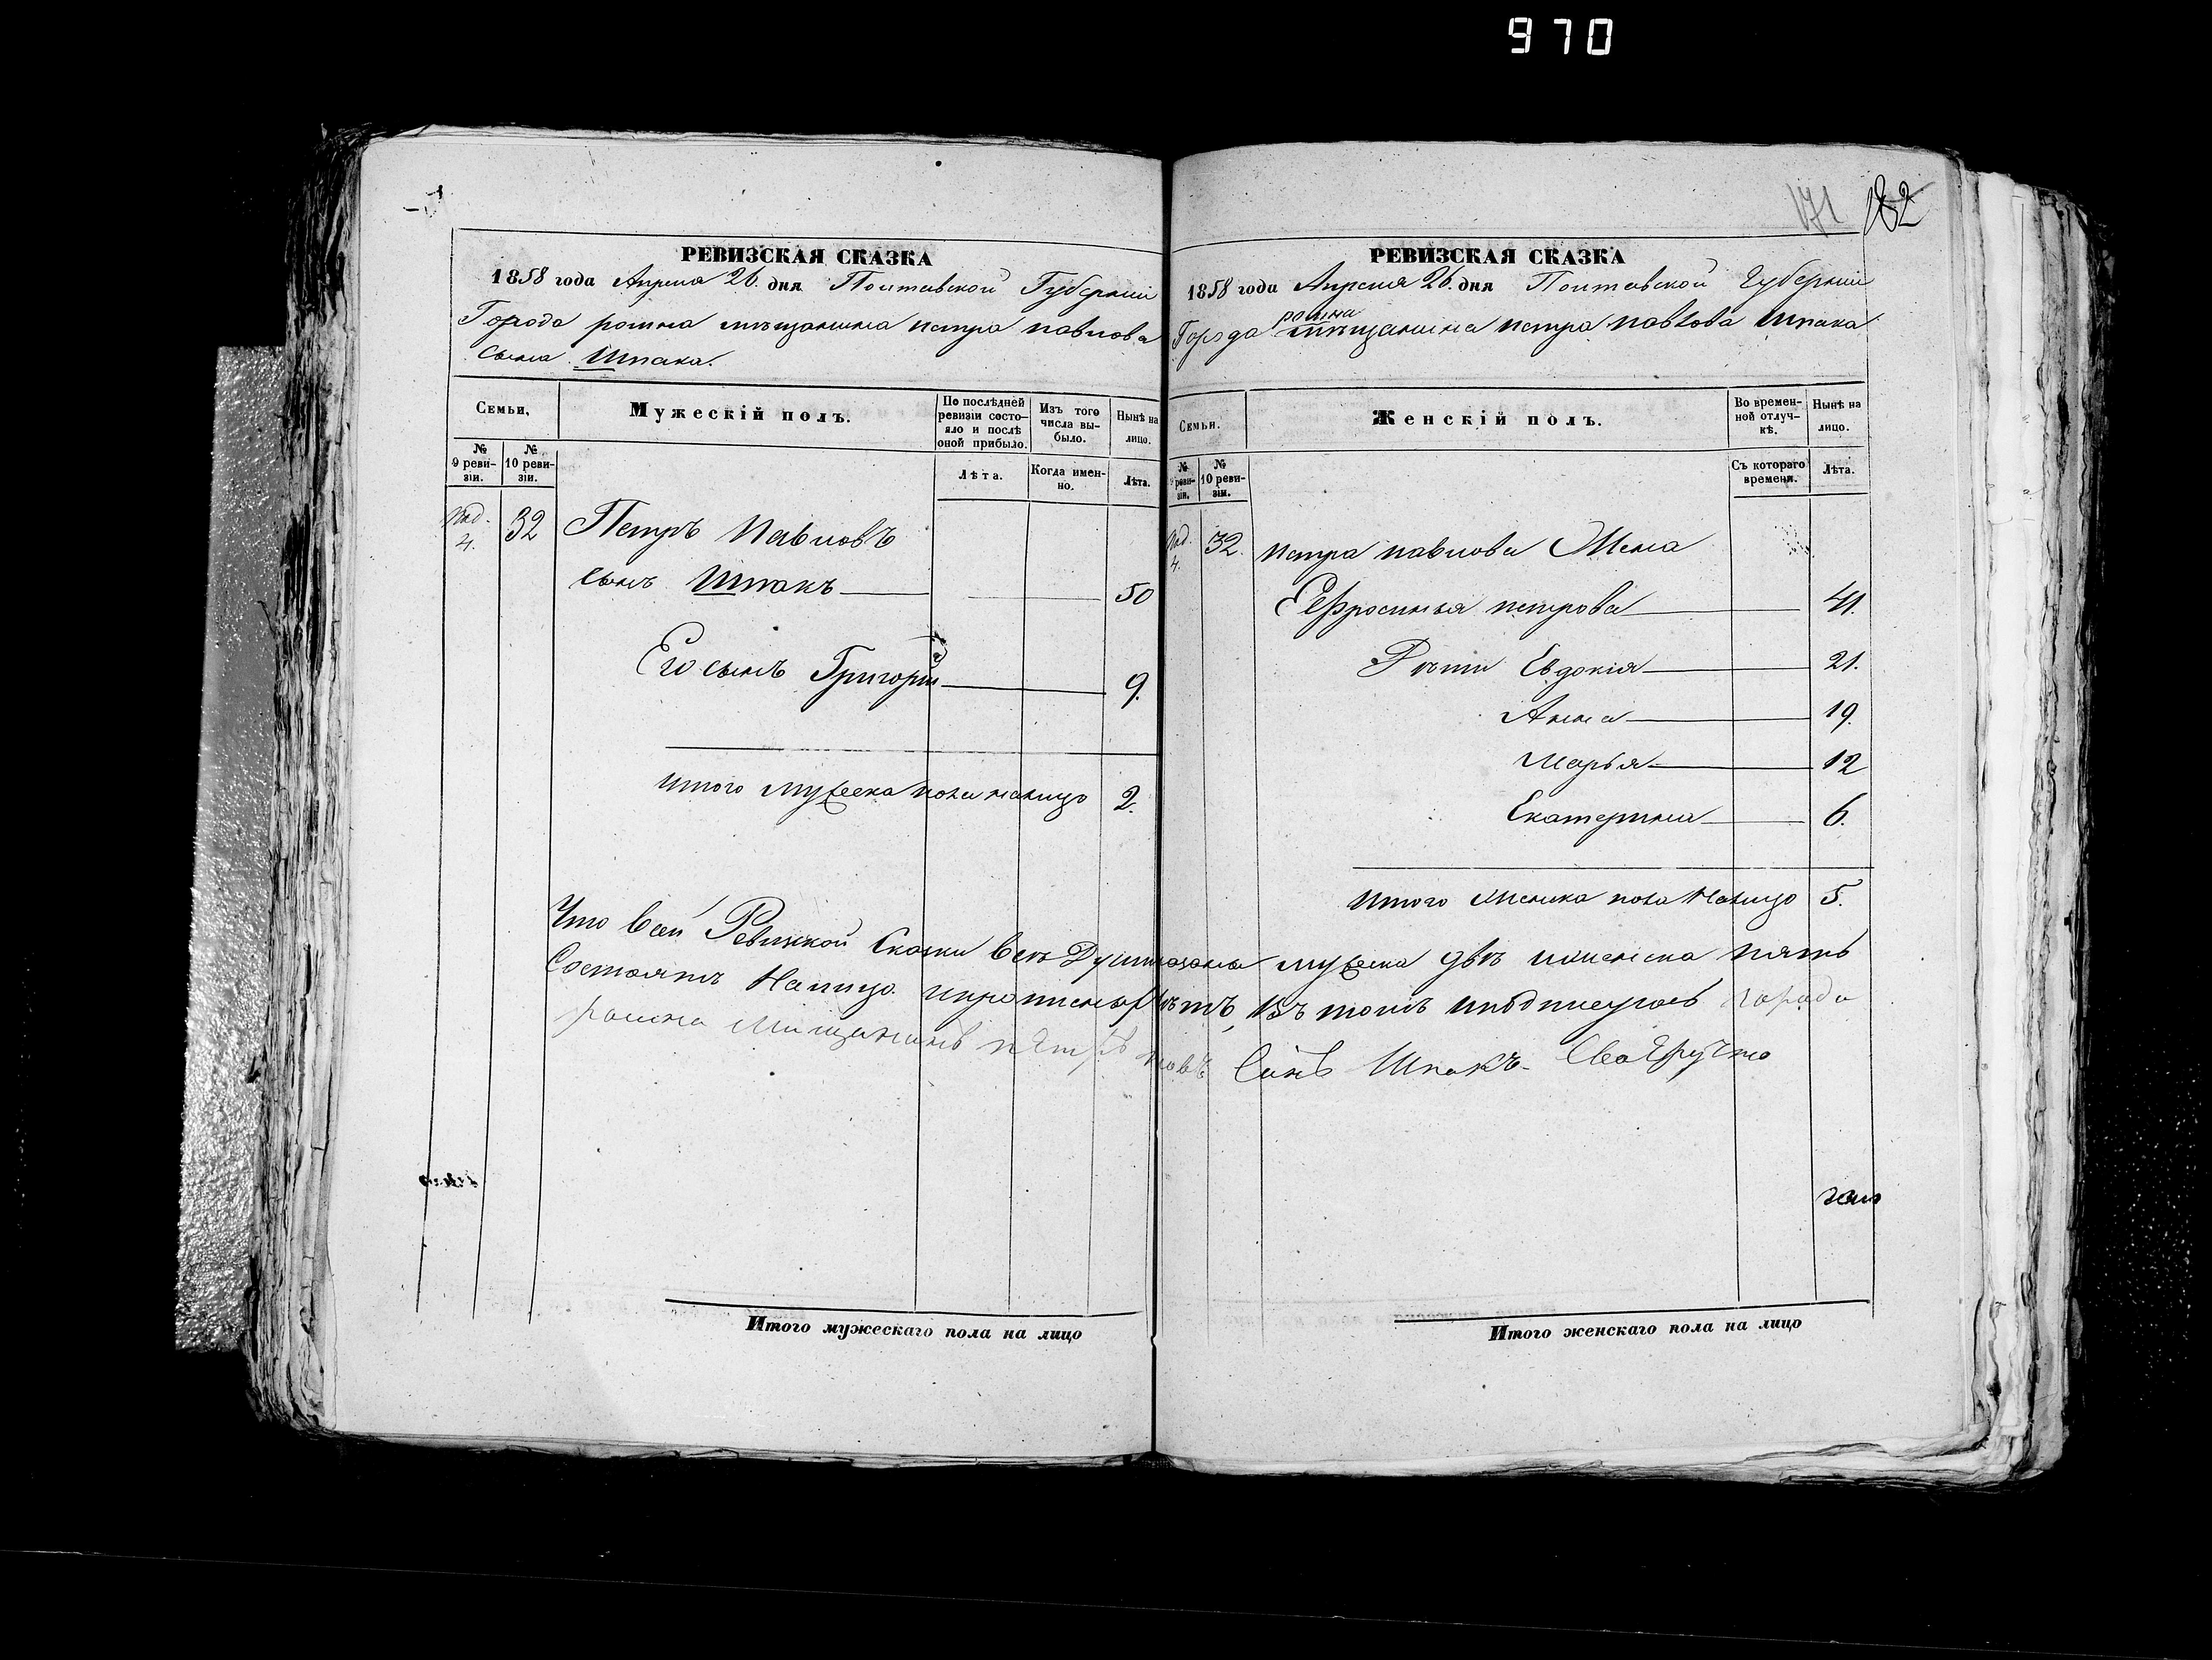 970
171 182
РЕВИЗСКАЯ СКАЗКА
1858 года Апреля 26. дня Полтавской Губерніи
Города ромна мѣщанина петра павлова
сына Шпака.
Семьи,
Мужескій полъ.
По послѣдней ревизіи состояло и послѣ оной прибыло.
Изъ того числа выбыло.
Нынѣ на лицо.
№ 9 ревизіи.
№ 10 ревизіи.
Лѣта.
Когда именно.
Лѣта.
под. 4. 32 Петръ Павловъ
сынъ Шпакъ 50
Его сынъ Григорій 9.
Итого мужеска пола налицо 2.
Итого мужескаго пола на лицо
РЕВИЗСКАЯ СКАЗКА
1858 года Апреля 26. дня Полтавской Губерніи
ромна
Города мѣщанина петра павлова Шпака
Семьи.
Женскій полъ.
Во временной отлучкѣ.
Нынѣ на лицо.
№ 9 ревизіи.
№ 10 ревизіи.
Съ котораго времени.
Лѣта.
под. 4. 32. петра павлова Жена
Еефросинья петрова 41.
Дѣти Евдокія 21.
Анна 19.
Марья 12
Екатерина 6.
Итого женска пола Налицо 5.
Что всей Ревизкой Скаски всѣ Души мужеска двѣ иженска пять
Состоятъ Налицо. нѣтъ, въ томъ иподписуюсь города
ромна Мищанинъ пЕтръ Синъ Шпакъ. СвоЕручно
Итого женскаго пола на лицо